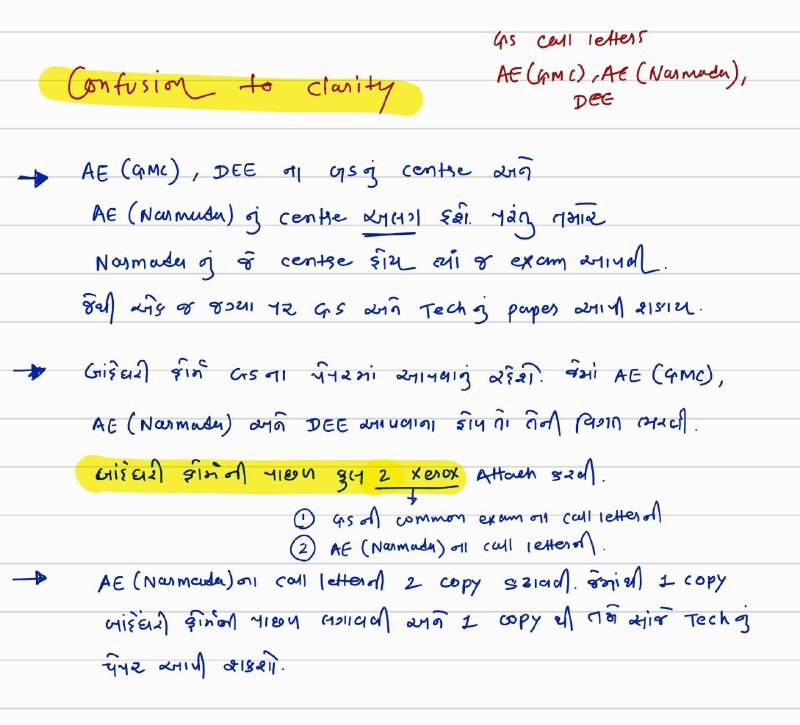 GS call letters
AE (GMC), AE (Narmada),
DEE
Confusion to clarity
→ AE (GMC), DEE ના GS નું centre અને
AE (Narmada) નું centre અલગ હશે. પરંતુ તમારે
Narmada નું જે centre હોય ત્યાં જ exam આપવી.
જેથી એક જ જગ્યા પર GS અને Tech નું paper આપી શકાય.
→ બાંહેધરી ફોર્મ GS ના પેપરમાં આપવાનું રહેશે. જેમાં AE (GMC),
AE (Narmada) અને DEE આપવાના હોય તો તેની વિગત ભરવી.
બાંહેધરી ફોર્મની પાછળ કુલ 2 xerox Attach કરવી.
① GS ની common exam ના call letter ની
② AE (Narmada) ના call letter ની.
→ AE (Narmada) ના call letter ની 2 copy કઢાવવી. જેમાંથી 1 copy
બાંહેધરી ફોર્મની પાછળ લગાવવી અને 1 copy થી તમે સાંજે Tech નું
પેપર આપી શકશો.